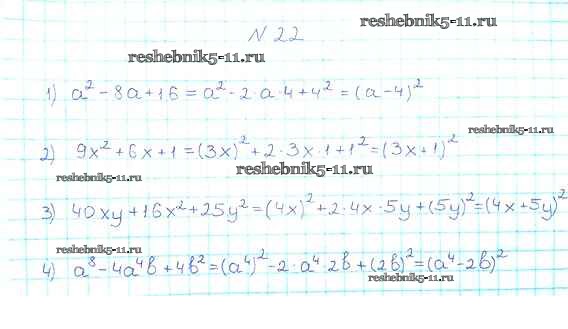 reshebnik5-11.ru
№ 22
reshebnik5-11.ru
1) a² - 8a + 16 = a² - 2·a·4 + 4² = (a - 4)²
reshebnik5-11.ru
2) 9x² + 6x + 1 = (3x)² + 2·3x·1 + 1² = (3x + 1)²
reshebnik5-11.ru
reshebnik5-11.ru
3) 40xy + 16x² + 25y² = (4x)² + 2·4x·5y + (5y)² = (4x + 5y)²
reshebnik5-11.ru
4) a⁸ - 4a⁴b + 4b² = (a⁴)² - 2·a⁴·2b + (2b)² = (a⁴ - 2b)²
reshebnik5-11.ru